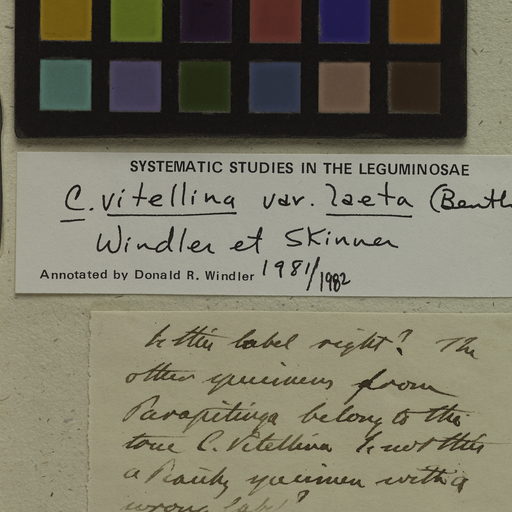 SYSTEMATIC STUDIES IN THE LEGUMINOSAE
C. vitellina var. laeta (Benth
Windler et Skinner
Annotated by Donald R. Windler 1981/1982
Is this label right? The
other specimens from
Parapitinga belong to the
true C. Vitellina Is not this
a Piauhy specimen with a
wrong label?